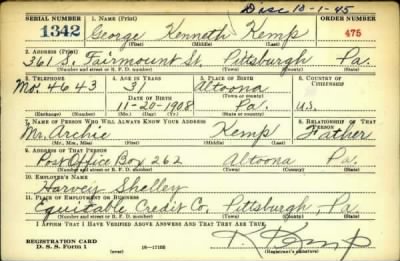 Disc 10-1-45
SERIAL NUMBER 1. NAME (Print) ORDER NUMBER
1342 George Kenneth Kemp 475
(First) (Middle) (Last)
2. ADDRESS (Print)
361 S. Fairmount St. Pittsburgh Pa.
(Number and street or R. F. D. number) (Town) (County) (State)
3. TELEPHONE 4. AGE IN YEARS 5. PLACE OF BIRTH 6. COUNTRY OF CITIZENSHIP
Mo. 4643 31 Altoona
DATE OF BIRTH (Town or county)
11-20-1908 Pa. U.S.
(Mo.) (Day) (Yr.) (State or country)
7. NAME OF PERSON WHO WILL ALWAYS KNOW YOUR ADDRESS 8. RELATIONSHIP OF THAT PERSON
Mr. Archie Kemp Father
(Mr., Mrs., Miss) (First) (Middle) (Last)
9. ADDRESS OF THAT PERSON
Post Office Box 262 Altoona Pa.
(Number and street or R. F. D. number) (Town) (County) (State)
10. EMPLOYER'S NAME
Harvey Shelley
11. PLACE OF EMPLOYMENT OR BUSINESS
Equitable Credit Co. Pittsburgh, Pa.
(Number and street or R. F. D. number) (Town) (County) (State)
I AFFIRM THAT I HAVE VERIFIED ABOVE ANSWERS AND THAT THEY ARE TRUE.
Kemp
REGISTRATION CARD
D. S. S. Form 1 (over) 16-17105